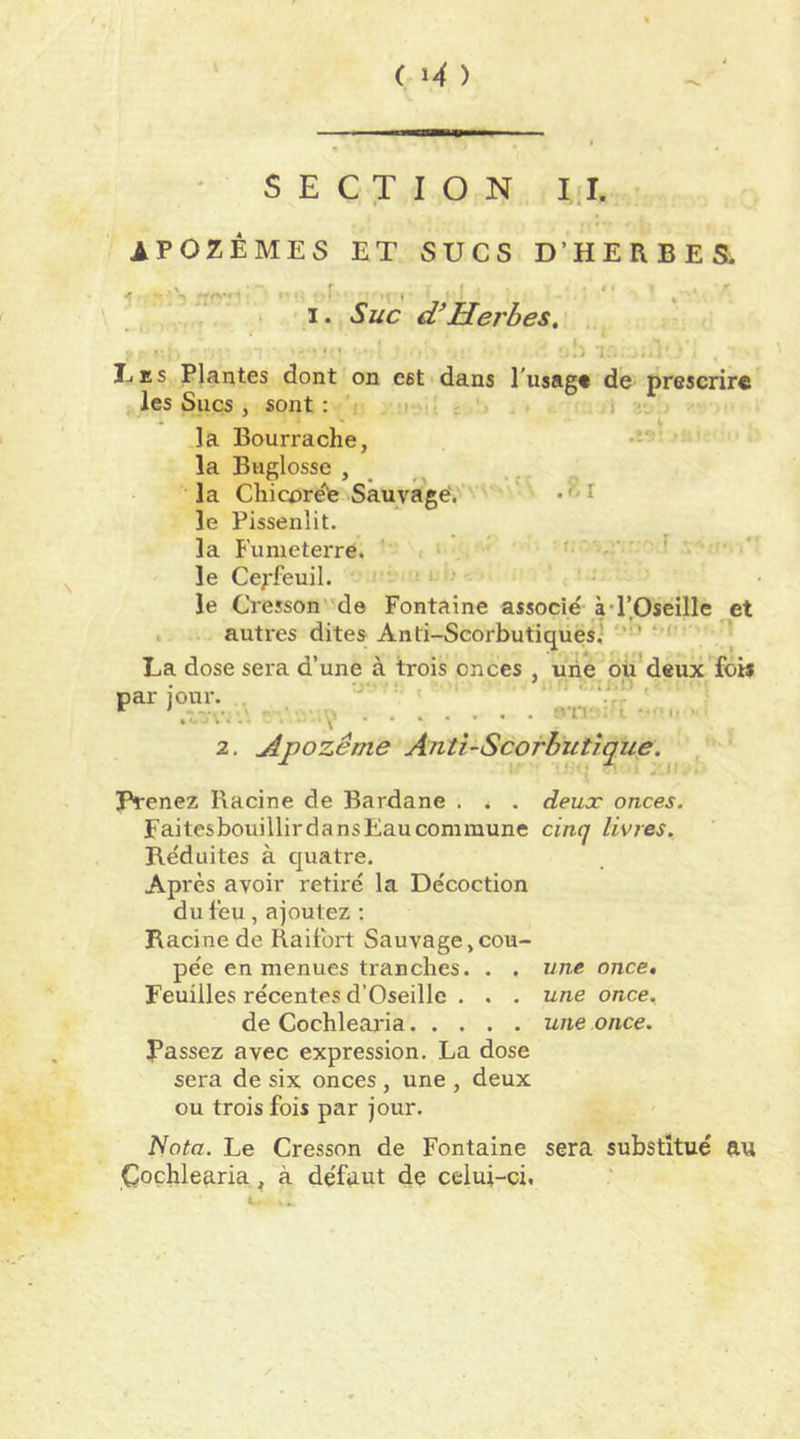 ( 14 )
SECTION II.
APOZÊMES ET SUCS D'HERBES.
1. Suc d'Herbes.
Les Plantes dont on est dans l'usage de prescrire
les Sucs , sont :
la Bourrache,
la Buglosse ,
la Chicorée Sauvage.
le Pissenlit.
la Fumeterre.
le Cerfeuil.
le Cresson de Fontaine associé à l'Oseille et
autres dites Anti-Scorbutiques.
La dose sera d'une à trois onces , une ou deux fois
par jour.
2. Apozême Anti-Scorbutique.
Prenez Racine de Bardane . . . deux onces.
Faites bouillir dans Eau commune cinq livres.
Réduites à quatre.
Après avoir retiré la Décoction
du feu , ajoutez :
Racine de Raifort Sauvage, cou-
pée en menues tranches. . . une once.
Feuilles récentes d'Oseille . . . une once.
de Cochlearia. . . . . une once.
Passez avec expression. La dose
sera de six onces , une , deux
ou trois fois par jour.
Nota. Le Cresson de Fontaine sera substitué au
Cochlearia , à défaut de celui-ci.